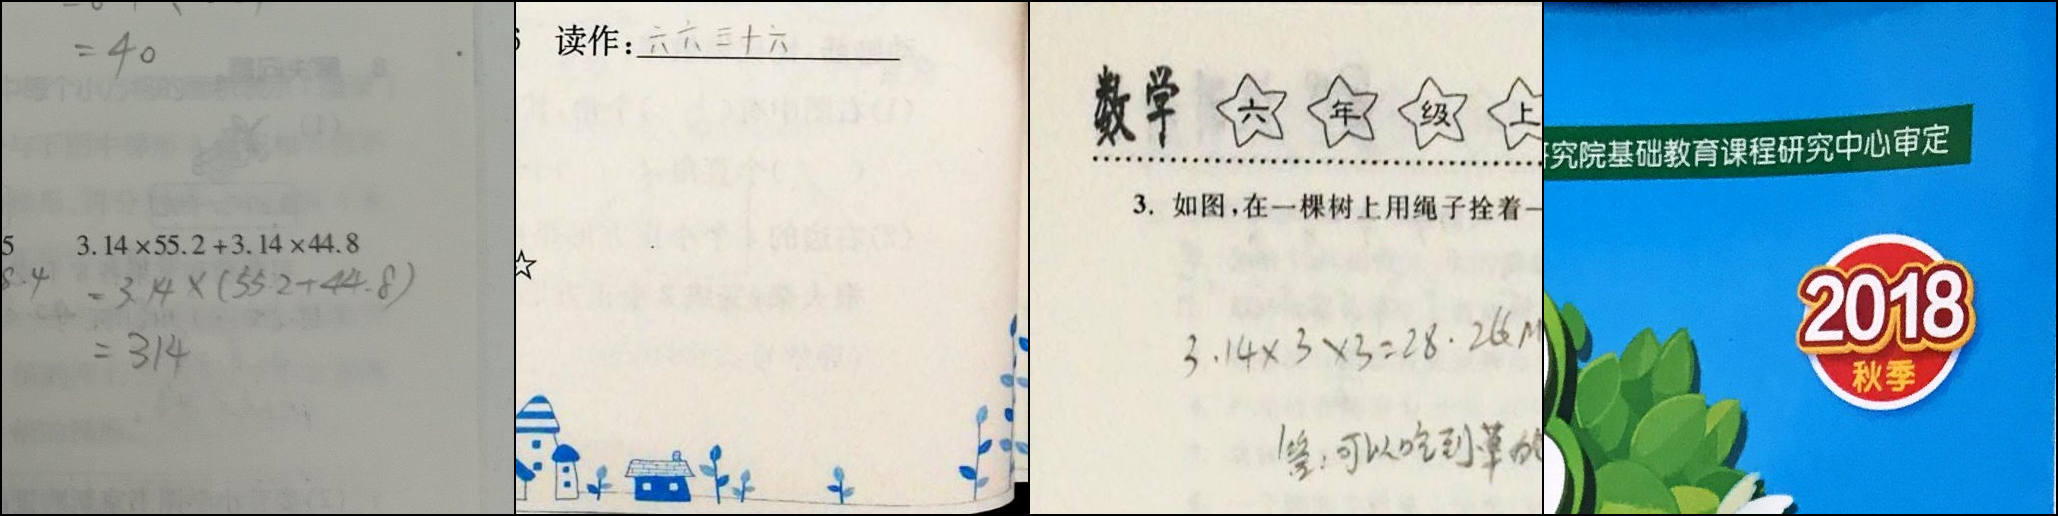 =40
5 3.14×55.2+3.14×44.8
8.4 =3.14×(55.2+44.8)
=314
读作:六六三十六
数学六年级上
3. 如图,在一棵树上用绳子拴着一
3.14×3×3=28.26
答:可以吃到草的
究院基础教育课程研究中心审定
2018
秋季